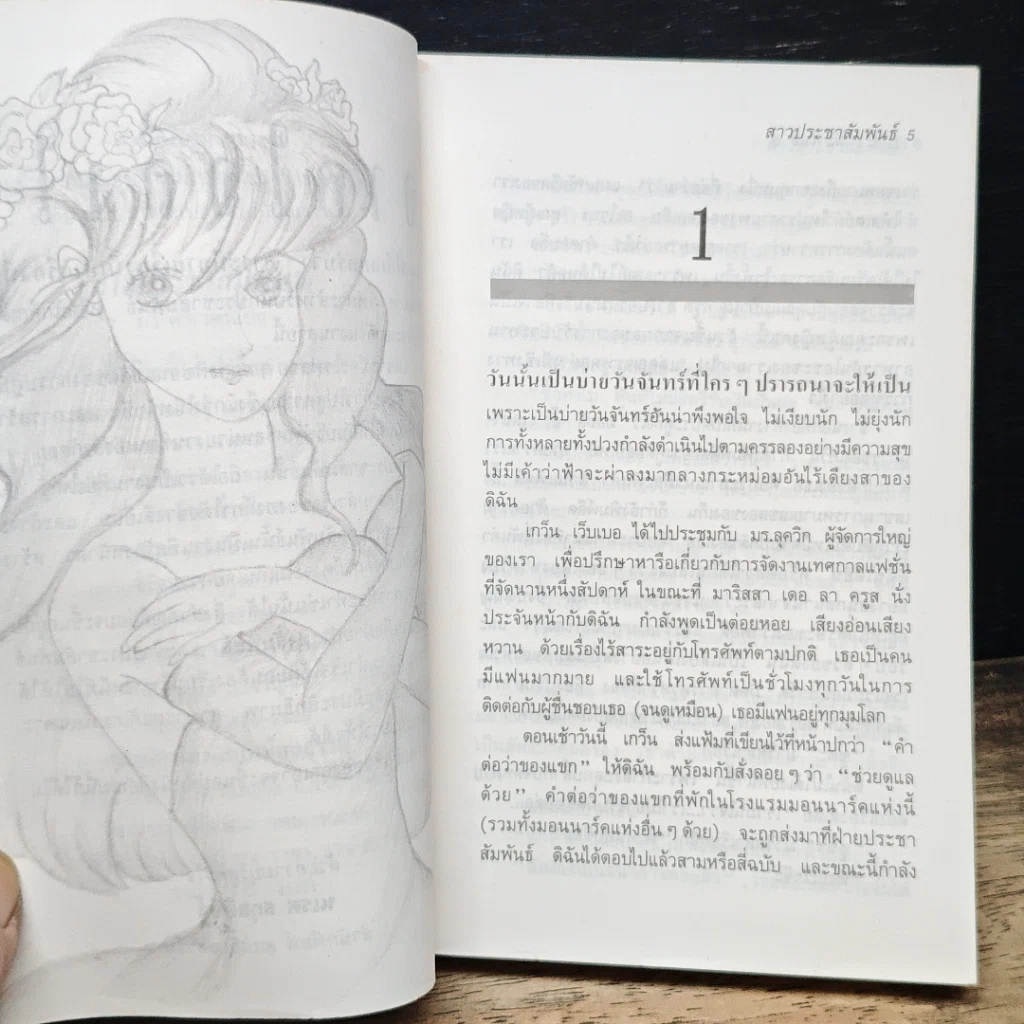 สาวประชาสัมพันธ์ 5
1
วันนั้นเป็นบ่ายวันจันทร์ที่ใคร ๆ ปรารถนาจะให้เป็น
เพราะเป็นบ่ายวันจันทร์อันน่าพึงพอใจ ไม่เงียบนัก ไม่ยุ่งนัก
การทั้งหลายทั้งปวงกำลังดำเนินไปตามครรลองอย่างมีความสุข
ไม่มีเค้าว่าฟ้าจะผ่าลงมากลางกระหม่อมอันไร้เดียงสาของ
ดิฉัน
เกว็น เว็บเบอ ได้ไปประชุมกับ มร.ลุควิก ผู้จัดการใหญ่
ของเรา เพื่อปรึกษาหารือเกี่ยวกับการจัดงานเทศกาลแฟชั่น
ที่จัดนานหนึ่งสัปดาห์ ในขณะที่ มาริสสา เดอ ลา ครูส นั่ง
ประจันหน้ากับดิฉัน กำลังพูดเป็นต่อยหอย เสียงอ่อนเสียง
หวาน ด้วยเรื่องไร้สาระอยู่กับโทรศัพท์ตามปกติ เธอเป็นคน
มีแฟนมากมาย และใช้โทรศัพท์เป็นชั่วโมงทุกวันในการ
ติดต่อกับผู้ชื่นชอบเธอ (จนดูเหมือน) เธอมีแฟนอยู่ทุกมุมโลก
ตอนเช้าวันนี้ เกว็น ส่งแฟ้มที่เขียนไว้ที่หน้าปกว่า “คำ
ต่อว่าของแขก” ให้ดิฉัน พร้อมกับสั่งลอย ๆ ว่า “ช่วยดูแล
ด้วย” คำต่อว่าของแขกที่พักในโรงแรมมอนนาร์คแห่งนี้
(รวมทั้งมอนนาร์คแห่งอื่น ๆ ด้วย) จะถูกส่งมาที่ฝ่ายประชา
สัมพันธ์ ดิฉันได้ตอบไปแล้วสามหรือสี่ฉบับ และขณะนี้กำลัง